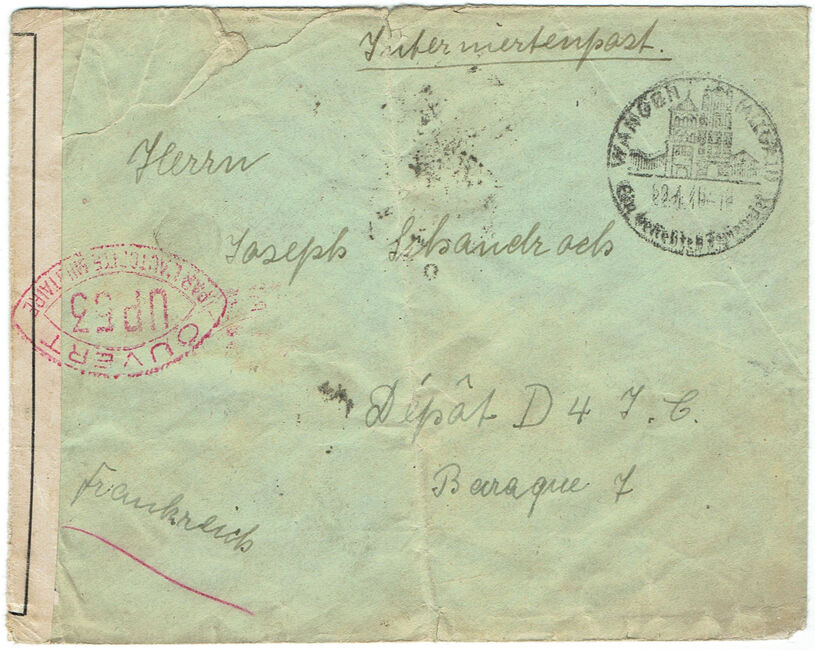 Interniertenpost.
WANGEN ALLGÄU
Herrn
Joseph
OUVERT
PAR L'AUTORITÉ MILITAIRE
UP 53
Dépôt D 4 J. C.
Baraque 7
Frankreich